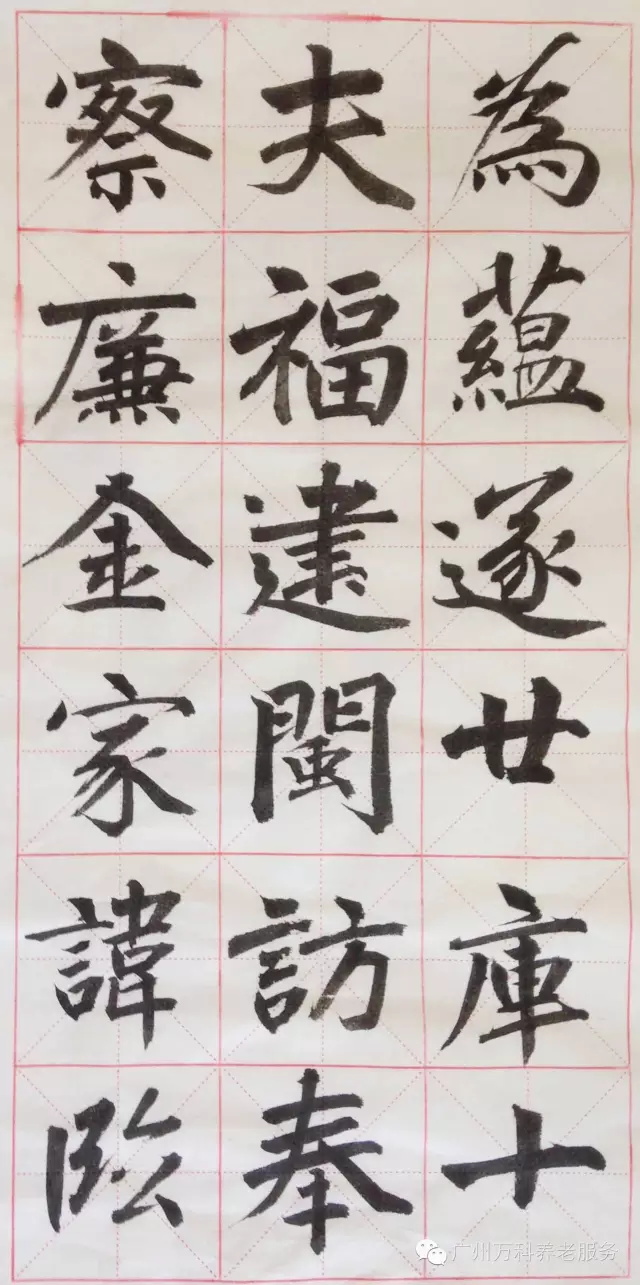 為蘊遂廿庫十
夫福建閩訪奉
察廉金家諱臨
广州万科养老服务